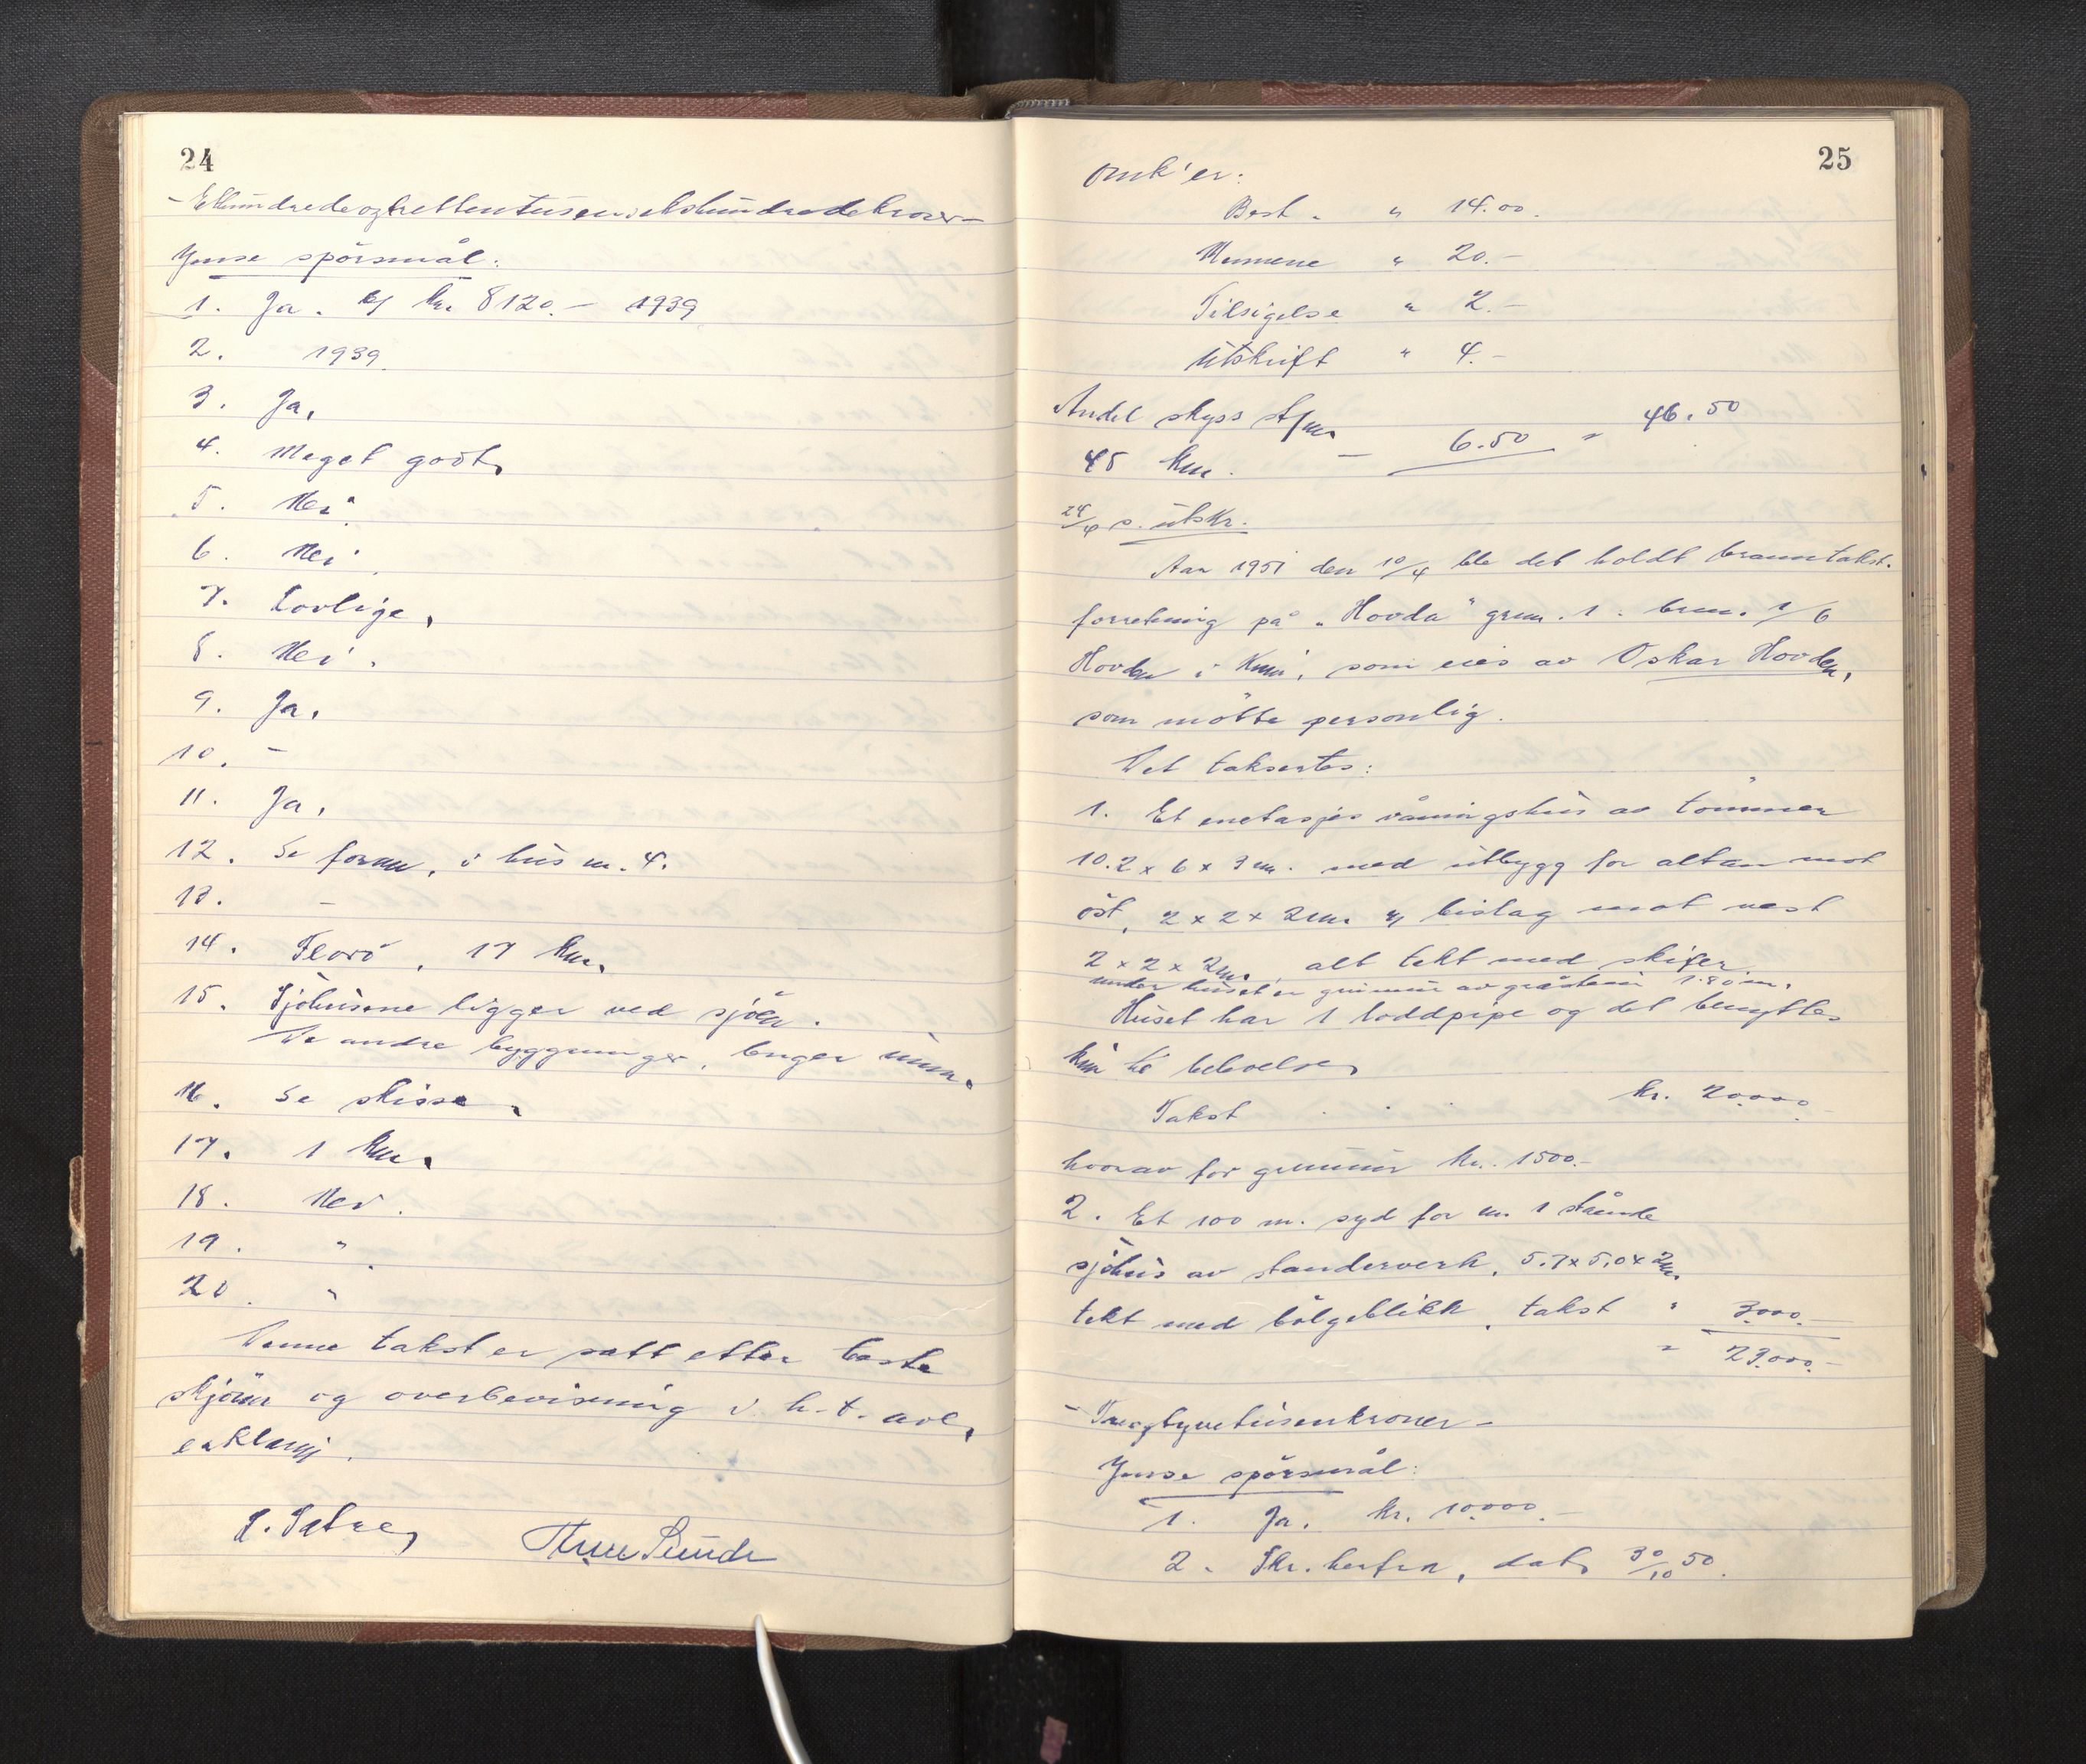 24
- Etthundredeogtrettentusensekshundredekroner -
Jnnse spörsmål:
1. Ja. kr. 8120.- 1939
2. 1939.
3. Ja.
4. Meget godt.
5. Nei.
6. Nei.
7. Lovlige.
8. Nei.
9. Ja.
10. -
11. Ja.
12. Se foran, i hus nr. 4.
13. -
14. Florö, 17 km.
15. Sjöhusene ligger ved sjöen.
De andre byggninger, lenger unna.
16. Se skisse.
17. 1 km.
18. Nei.
19. "
20. "
Denne takst er satt etter beste
skjönn og overbevisning i h.t. avl.
erklæring.
Sætre
Sunde
25
Omk'er:
Best. " 14.00.
Mennene " 20.-
Tilsigelse " 2.-
Utskrift " 4.-
Andel skyss
45 km. - 6.50 " 46.50
24/4 s. utskr.
Aar 1951 den 10/4 ble det holdt branntakst-
forretning på "Hovda" grnr. 1. brnr. 1/6
Hovden i Kinn, som eies av Oskar Hovden,
som mötte personlig.
Det taksertes:
1. Et enetasjes våningshus av tömmer
10.2 x 6 x 3 m. med utbygg for altan mot
öst, 2 x 2 x 2 m. og bislag mot vest
2 x 2 x 2 m., alt tekt med skifer.
under huset er grunnmur av gråstein 1.80 m.
Huset har 1 loddpipe og det benyttes
kun til beboelse.
Takst . . . kr. 20.000.-
hvorav for grunnmur kr. 1500.-
2. Et 100 m. syd for nr. 1 stående
sjöhus av standerverk, 5.7 x 5.0 x 2 m.
tekt med bölgeblikk, takst " 3.000.-
" 23.000.-
- Treogtyvetusenkroner -
Jnnse spörsmål:
1. Ja. kr. 10.000.-
2. Skr. herfra, dat. 30/10 50.